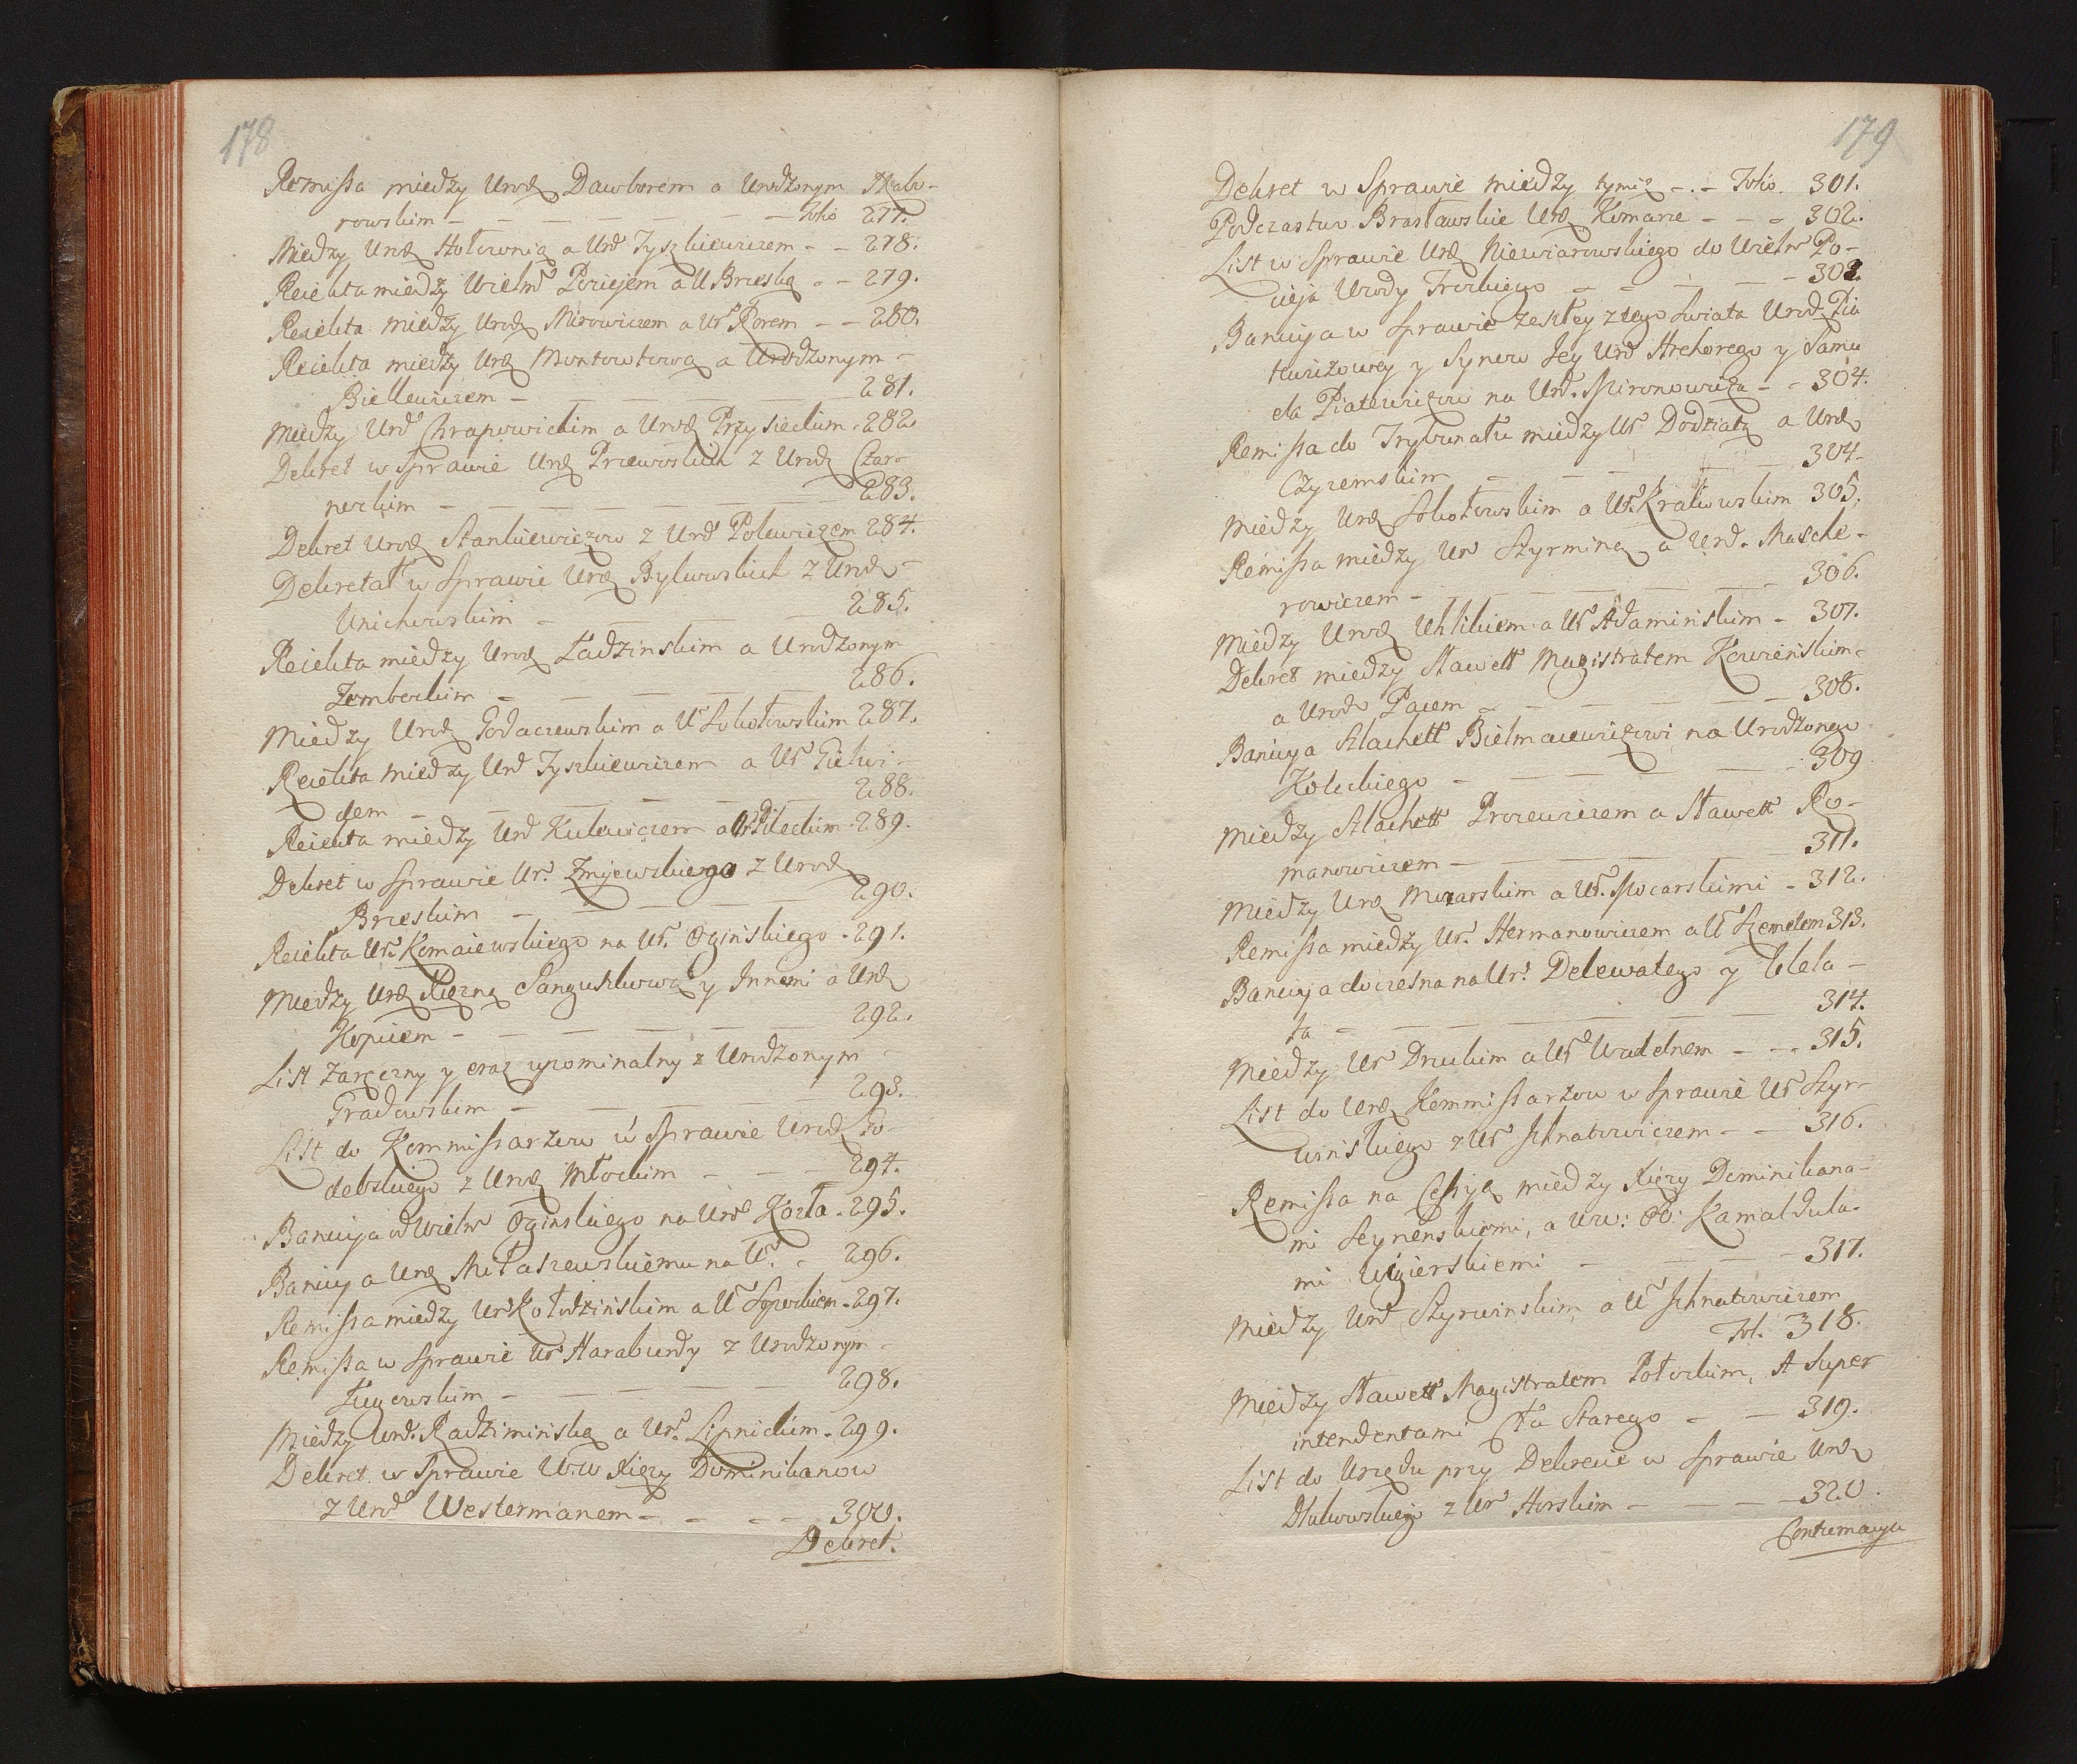 178
Remissa miedzy Urodz Dawborem a Urodzonym Skabo-
rowskim - - - - - - - Folio 277.
Miedzy Urodz Hołownią a Urd Tyszkiewiczem - - 278.
Reiekta miedzy Wielmd Pociejem a U Brzeską - - 279.
Reiekta miedzy Urodz Mirowiczem a Ur Korem - - 280.
Reiekta miedzy Urd Montowtową a Urodzonym -
Billewiczem - - - - - - 281.
Miedzy Urd Chrapowickim a Urodz Przysieckim - 282.
Dekret w Sprawie Urd Przewoskich z Urodz Czar-
neckim - - - - - - 283.
Dekret Urodz Stankiewiczow z Urd Polewiczem 284.
Dekretał w Sprawie Urd Bykowskich z Urodz -
Unichowskim - - - - - 285.
Reiekta miedzy Urodz Ładzinskim a Urodzonym
Zembockim - - - - - 286.
Miedzy Urodz Godaczewskim a Ur Sokołowskim 287.
Reiekta miedzy Urd Tyszkiewiczem a Ur Giełwi-
dem - - - - - - 288.
Reiekta miedzy Urd Kulewiczem a Ur Pileckim - 289.
Dekret w Sprawie Ur. Zmijewskiego z Urodz
Brzeskim - - - - - 290.
Reiekta Ur. Komaiewskiego na Ur. Oginskiego - 291.
Miedzy Urd Xięzną Sanguszkową y Innemi a Urd
Kopciem - - - - - 292.
List Zaręczny y oraz upominalny z Urodzonym -
Gradowskim - - - - - 293.
List do Kommissarzow w Sprawie Urodz Ło-
debskiego z Urodz Młockim - - - 294.
Banicya od Wielm Oginskiego na Urd Kozła - 295.
Banicya Urd Mitaszewskiemu na U. - 296.
Remissa miedzy Ur Kołodzinskim a U Sopockim - 297.
Remissa w Sprawie Ur Haraburdy z Urodzonym -
Ługowskim - - - - - 298.
Miedzy Urd. Radziminską a Ur. Lipnickim - 299.
Dekret w Sprawie W:W Xięzy Dominikanow
z Urd Westermanem - - - - 300.
Dekret.
179
Dekret w Sprawie miedzy tymiz - - - Folio. 301.
Podczastwo Brasławskie Urd Komarze - - - 302.
List w Sprawie Urd Niewiarowskiego do Wielm Po-
cieja Wody Trockiego - - - - 303.
Banicya w Sprawie zeszłey z tego Swiata Urod. Pia
tewiczowey y Synow Jey Urd Hrehorego y Samu
ela Piatewiczow na Urd. Spironowicza - - 304.
Remissa do Trybunału miedzy Ur Dodziałą a Urd
Czyzemskim - - - - 304.
Miedzy Urd Sokołowskim a Ur. Krakowskim 305.
Remissa miedzy Ur Szyrminą a Urd. Maske-
rowiczem - - - - - 306.
Miedzy Urodz Uhlikiem a Ur Adaminskim - 307.
Dekret miedzy Sławett Magistratem Kowienskim -
a Urod Pacem - - - - - 308.
Banicya Szlachett Bielmacewiczowi na Urodzonego
Koleckiego - - - - - 309
Miedzy Szlachett Prozewiczem a Sławett Ro-
manowiczem - - - - - 311.
Miedzy Urd Mozarskim a Ur. Mocarskiemi - 312.
Remissa miedzy Ur. Hermanowiczem a U Szemetem 313.
Banicya doczesna na Ur. Delewatego y Uleła-
ta - - - - - - 314.
Miedzy Ur Druckim a Ur Wadelnem - - - 315.
List do Urd Kommissarzow w Sprawie Ur Szyr-
winskiego z Ur Ihnatowiczem - - 316.
Remissa na Cessyą miedzy Xięzy Dominikana-
mi Seynenskiemi, a WW: OO: Kamaldula-
mi Wigierskiemi - - - - 317.
Miedzy Urd Szyrwinskim, a U Ihnatowiczem
Fol. 318.
Miedzy Sławett Magistratem Połockim, A Super
intendentami Sta Starego - - 319.
List do Urzędu przy Dekrecie w Sprawie Urd
Dłukowskiego z Ur Horskim - - - - 320.
Contumacya